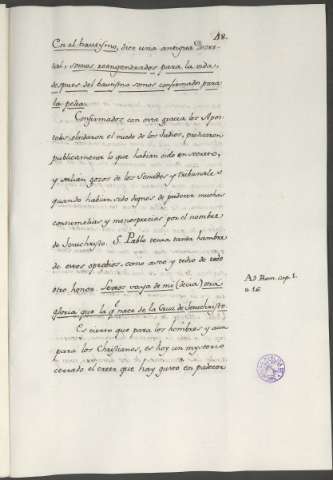 48.
En el bautismo, dice una antigua Decre-
tal, somos reengendrados para la vida,
despues del bautismo somos confirmados para
la pelea.
Confirmados con esta gracia los Apos-
toles olvidaron el miedo de los Judios, predicaron
publicamente lo que habian oido en secreto,
y salian gozosos de los Senados y tribunales
quando habian sido dignos de padecer muchas
contumelias y menosprecios por el nombre
de Jesuchristo. S. Pablo tenia tanta hambre
de estos oprobios, como asco y tedio de todo
otro honor. Lexos vaya de mi (decia) otra
gloria que la q.e nace de la Cruz de Jesuchristo.
Ad Rom. cap. 1.
v. 16.
Es cierto que para los hombres y aun
para los Christianos, es hoy un mysterio
cerrado el creer que hay gusto en padecer